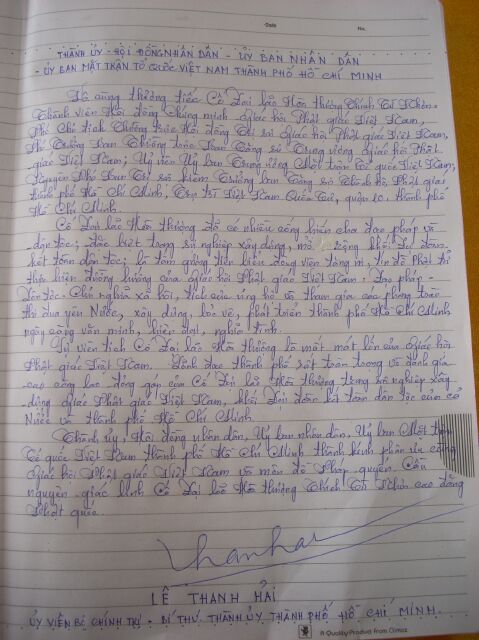 Date No.
THÀNH ỦY - HỘI ĐỒNG NHÂN DÂN - ỦY BAN NHÂN DÂN
- ỦY BAN MẶT TRẬN TỔ QUỐC VIỆT NAM THÀNH PHỐ HỒ CHÍ MINH
Vô cùng thương tiếc Cố Đại lão Hòa thượng Thích Từ Nhơn.
Thành viên Hội đồng Chứng minh Giáo hội Phật giáo Việt Nam,
Phó Chủ tịch Thường trực Hội đồng Trị sự Giáo hội Phật giáo Việt Nam,
Phó Trưởng ban Thường trực Ban Tăng sự Trung ương Giáo hội Phật
giáo Việt Nam; Ủy viên Ủy ban Trung ương Mặt trận Tổ quốc Việt Nam;
Nguyên Phó Ban Trị sự kiêm Trưởng ban Tăng sự Thành hội Phật giáo
thành phố Hồ Chí Minh, Trụ trì Việt Nam Quốc Tự, quận 10, thành phố
Hồ Chí Minh.
Cố Đại lão Hòa thượng đã có nhiều công hiến cho đạo pháp và
dân tộc; đặc biệt trong sự nghiệp xây dựng, mở rộng khối đại đoàn
kết toàn dân tộc; là tấm gương tiêu biểu động viên tăng ni, tín đồ Phật tử
thực hiện đường hướng của Giáo hội Phật giáo Việt Nam: Đạo pháp -
Dân tộc - Chủ nghĩa xã hội, tích cực ủng hộ và tham gia các phong trào
thi đua yêu Nước, xây dựng, bảo vệ, phát triển thành phố Hồ Chí Minh
ngày càng văn minh, hiện đại, nghĩa tình.
Sự viên tịch Cố Đại lão Hòa thượng là mất mát lớn của Giáo hội
Phật giáo Việt Nam. Lãnh đạo thành phố rất trân trọng và đánh giá
cao công lao đóng góp của Cố Đại lão Hòa thượng trong sự nghiệp xây
dựng Giáo Phật giáo Việt Nam, khối Đại đoàn kết toàn dân tộc của cả
Nước và thành phố Hồ Chí Minh.
Thành ủy, Hội đồng nhân dân, Ủy ban nhân dân, Ủy ban Mặt trận
Tổ quốc Việt Nam thành phố Hồ Chí Minh thành kính phân ưu cùng
Giáo hội Phật giáo Việt Nam và môn đồ pháp quyến. Cầu
nguyện giác linh Cố Đại lão Hòa thượng Thích Từ Nhơn cao đăng
Phật quốc.
LÊ THANH HẢI
ỦY VIÊN BỘ CHÍNH TRỊ - BÍ THƯ THÀNH ỦY THÀNH PHỐ HỒ CHÍ MINH.
A Quality Product from